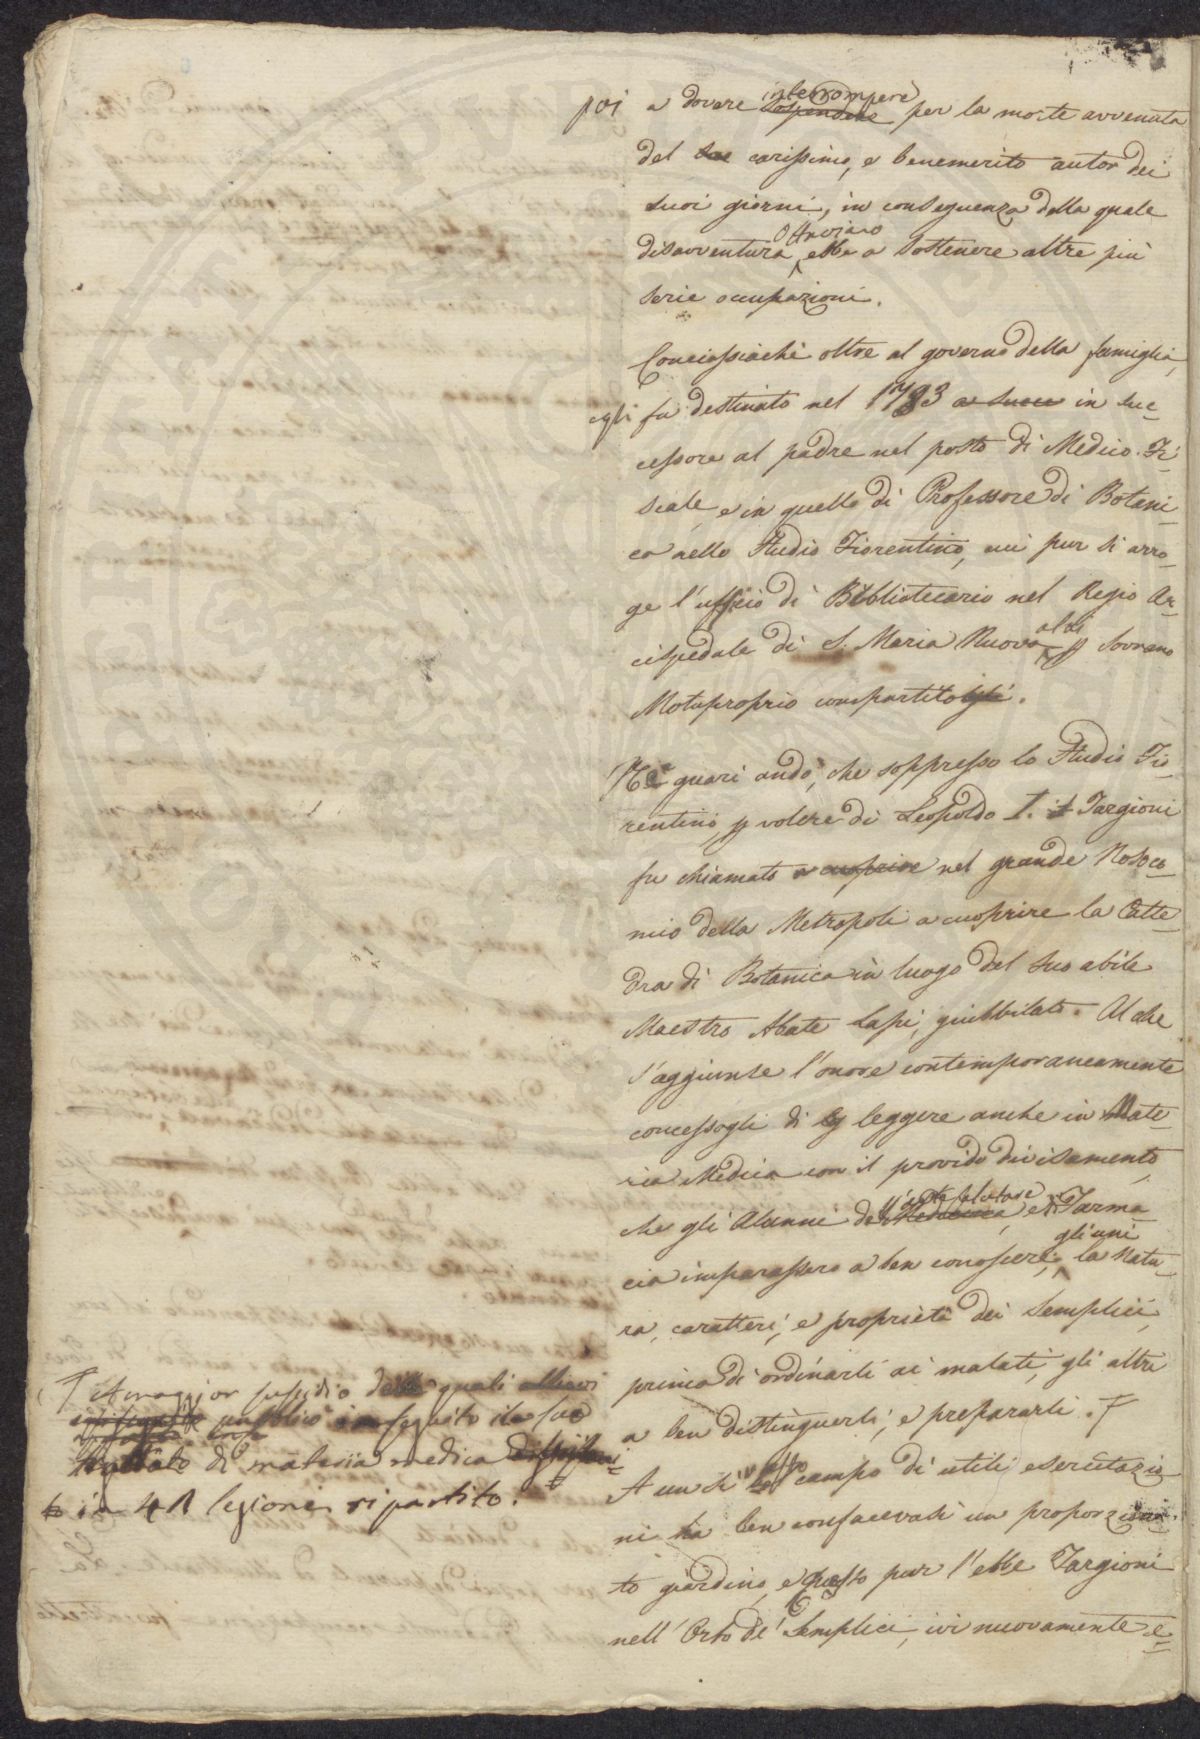 poi a dovere interrompere sospendere per la morte avvenuta
del suo carissimo, e benemerito autor dei
suoi giorni, in conseguenza della quale
disavventura Ottaviano ebbe a sostenere altre più
serie occupazioni.
Conciossiachè oltre al governo della famiglia,
egli fu destinato nel 1783 a succe in suc=
cessore al padre nel posto di Medico Fi=
scale, e in quello di Professore di Botani=
ca nello Studio Fiorentino, cui pur si arro=
ge l'uffizio di Bibliotecario nel Regio Ar=
cispedale di S. Maria Nuova p Sovrano
Motuproprio compartitogli.
Nè guari andò, che soppresso lo Studio Fio=
rentino, p volere di Leopoldo I. il Targioni
fu chiamato a cuoprire nel grande Nosoco=
mio della Metropoli a cuoprire la Catte=
dra di Botanica in luogo del suo abile
Maestro Abate Lapi, giubbilato. Al che
s'aggiunse l'onore contemporaneamente
concessogli di leg leggere anche in Mate=
ria Medica con il provido divisamento,
che gli Alunni dell'arte salutare Medicina, e di Farma=
cia imparassero a ben conoscere, gli uni la Natu=
ra, caratteri, e proprietà dei Semplici,
prima di ordinarli ai malati, gli altri
a ben distinguerli, e prepararli. †
A un sì vasto campo di utili esercitazio=
ni ha ben confacevasi un proporziona=
to giardino, e questo pur l'ebbe Targioni
nell'Orto de' Semplici, ivi nuovamente e=
† A maggior sussidio de quali allievi
pubblicò in seguito il suo
Trattato di materia medica
in 41 lezione ripartito. †